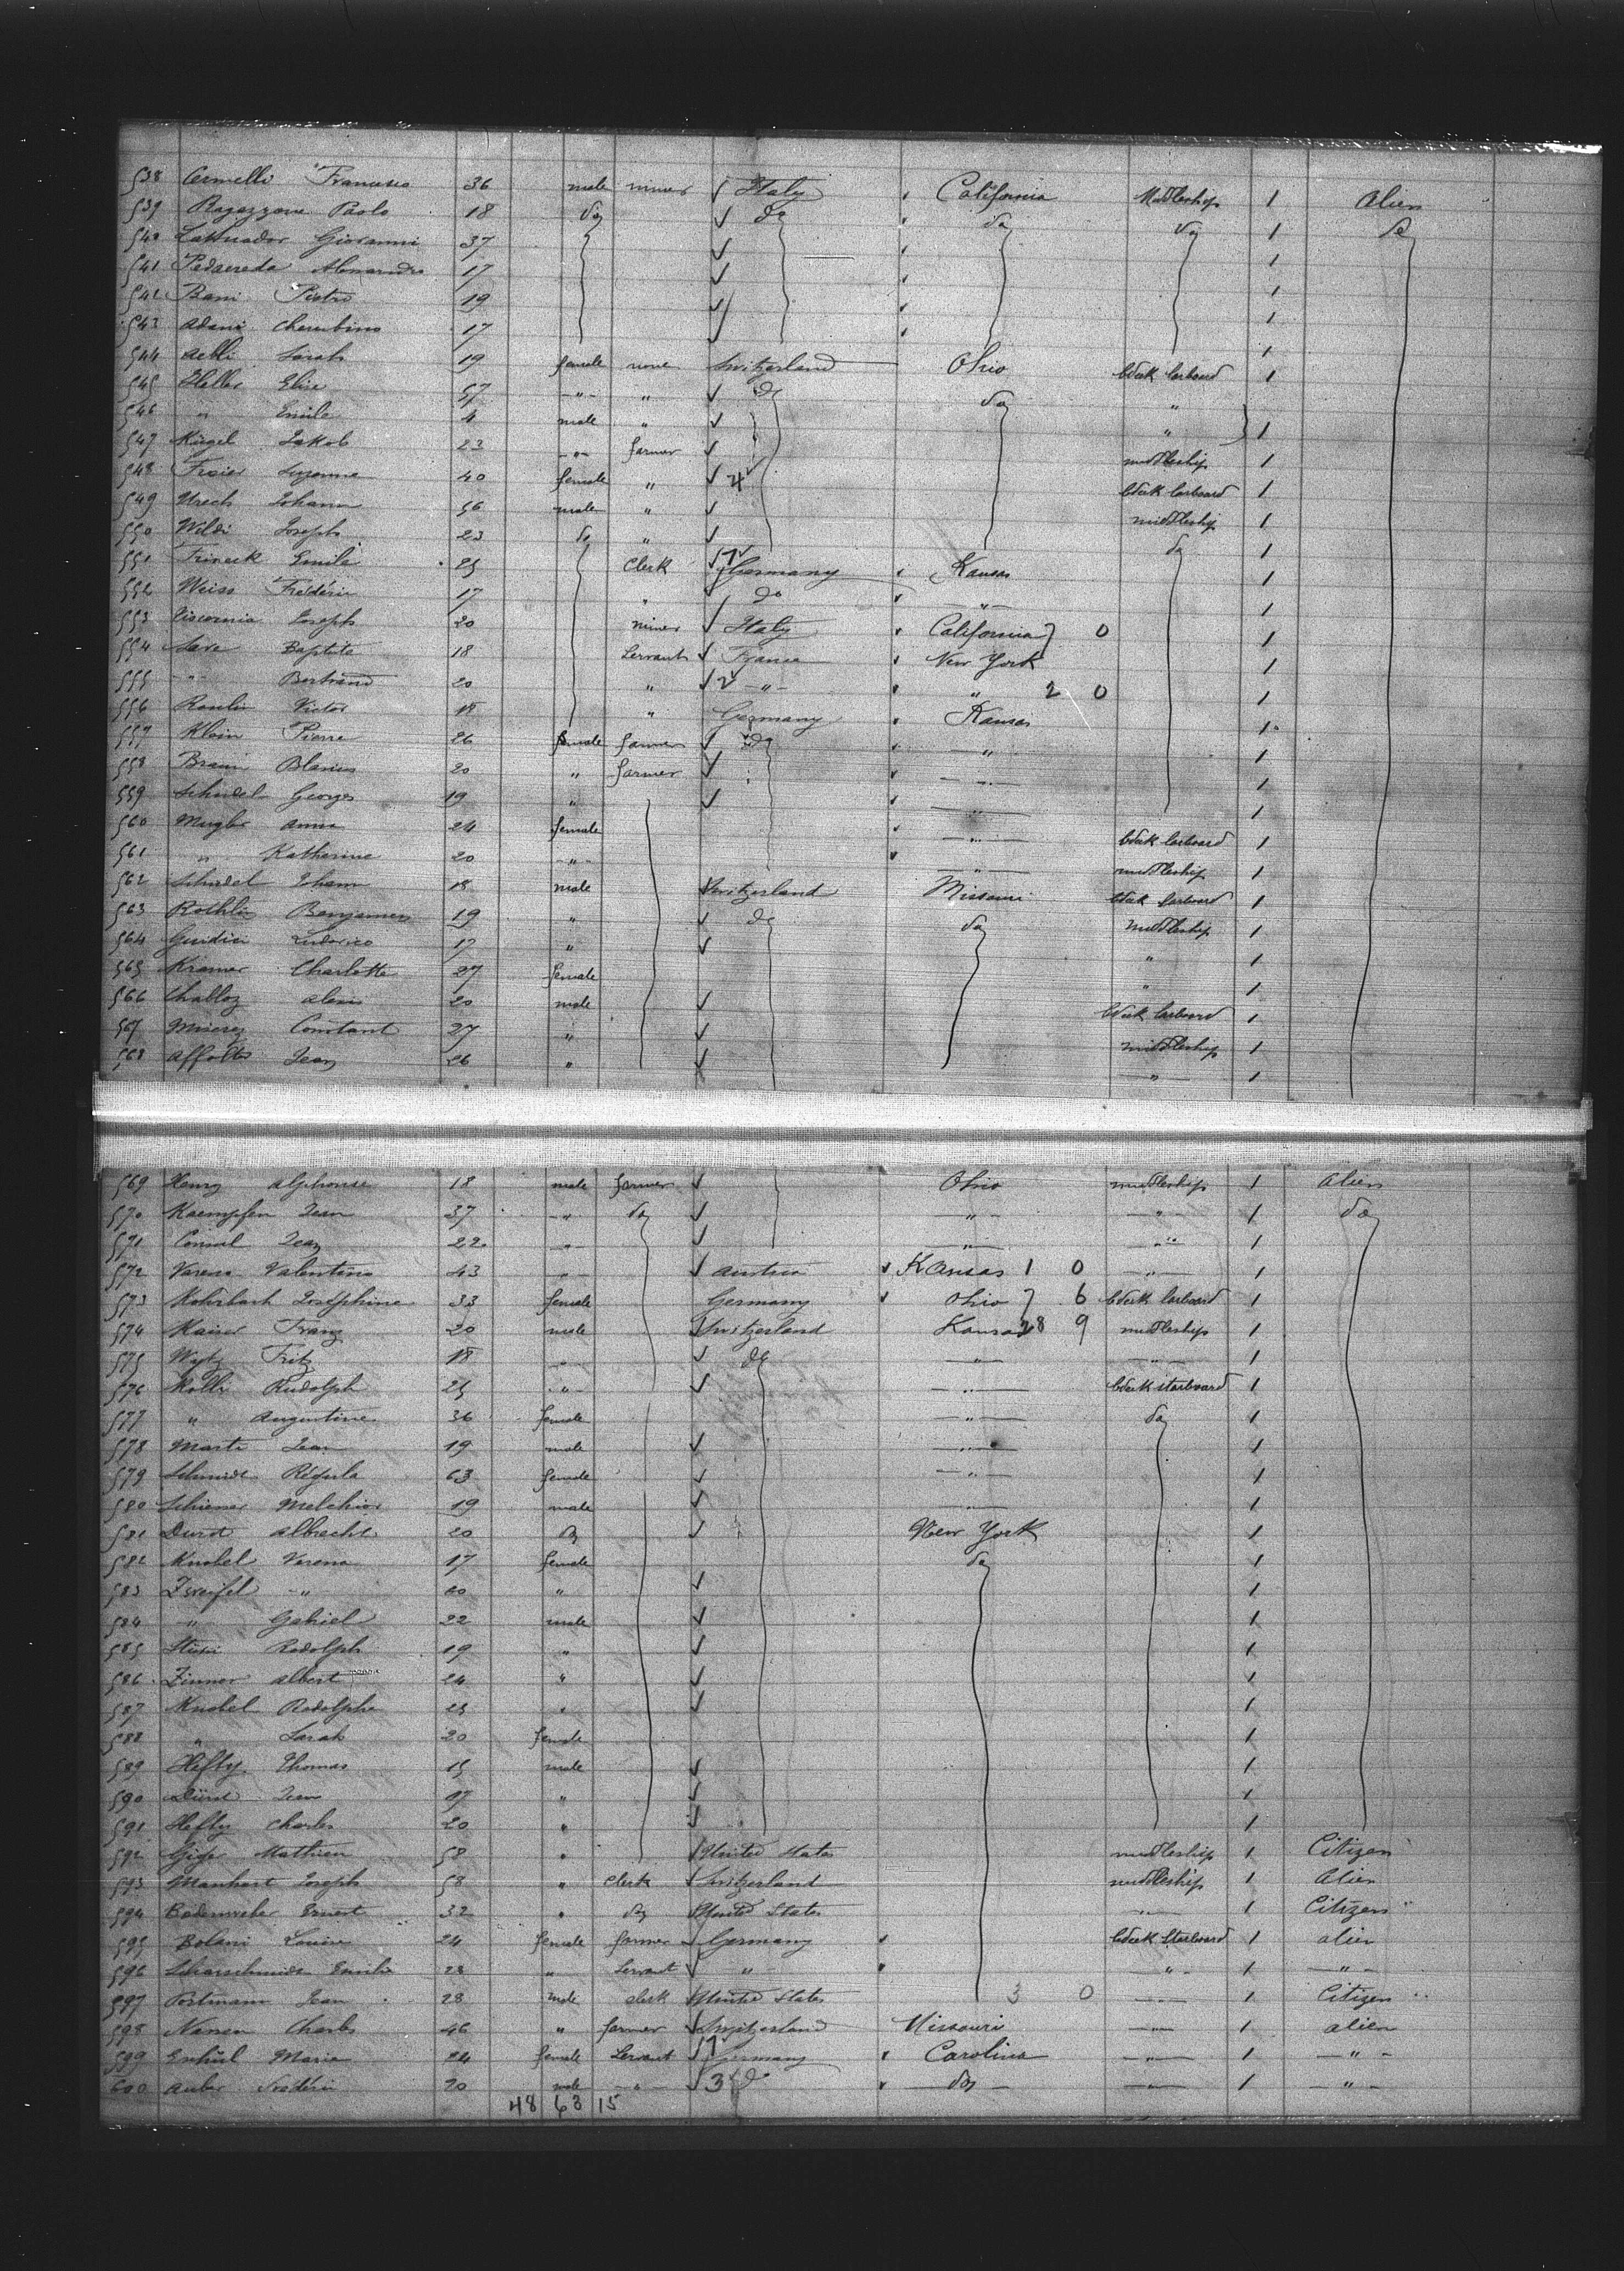 538 Francesco 36 male miner Italy California Middleship 1 Alien
539 Ragazzone Paolo 18 do do do do 1 do
540 Giovanni 37 1
541 17 1
542 Pietro 19 1
543 Adani Cherubino 17 1
544 Aebli Sarah 19 female none Switzerland Ohio bdeck larboard 1
545 Heller Elise 57 -"- " do do "
546 " Emile 4 male " " 1
547 Jakob 23 -"- farmer middleship 1
548 Suzanne 40 female " 4 bdeck larboard 1
549 Urech Johann 56 male " middleship 1
550 Wildi Joseph 23 do " do 1
551 Emile 25 Clerk 7 Germany Kansas 1
552 Weiss Frédéric 17 " do -"- 1
553 Joseph 20 miner Italy California 0 1
554 Baptiste 18 Servant France New York 1
555 -"- Bertrand 20 " 2 -"- " 2 0 1
556 Victor 18 " Germany Kansas 1
557 Klein Pierre 26 female farmer do -"- 1
558 Braun Blasius 20 " farmer -"- 1
559 Schidel Georges 19 " -"- 1
560 Mugler Anna 24 female -"- bdeck larboard 1
561 " Katherine 20 -"- -"- middleship 1
562 Schidel Johann 18 male Switzerland Missouri bdeck larboard 1
563 Rothlin Benjamen 19 " do do middleship 1
564 Guidici Ludovico 17 " " 1
565 Kramer Charlotte 27 female " 1
566 Chabloz Alexis 20 male bdeck larboard 1
567 Constant 27 " middleship 1
568 Affolter Jean 26 " -"- 1
569 Henry Alphonse 18 male farmer Ohio middleship 1 Alien
570 Kaempfen Jean 37 -"- do -"- -"- 1 do
571 Jean 22 -"- -"- -"- 1
572 Valentino 43 -"- Austria Kansas 1 0 -"- 1
573 Rohrbach Joséphine 33 female Germany Ohio 7 6 bdeck larboard 1
574 Kaiser Franz 20 male Switzerland Kansas 28 9 middleship 1
575 Fritz 18 -"- do -"- -"- 1
576 Rudolph 25 -"- -"- bdeck starboard 1
577 " Augustine 36 female -"- do 1
578 Marti Jean 19 male -"- 1
579 Schmidt Régula 63 female -"- 1
580 Schiener Melchior 19 male -"- 1
581 Durst Albrecht 20 do New York 1
582 Knobel Verena 17 female do 1
583 Zweifel -"- 20 " 1
584 -"- Gabriel 22 male 1
585 Stüssi Rodolph 19 " 1
586 Zimmer Albert 24 " 1
587 Knobel Rodolphe 25 " 1
588 " Sarah 20 female 1
589 Hefty Thomas 15 male 1
590 Dürst Jean 17 " 1
591 Hefty Charles 20 " 1
592 Mathieu 58 " United States middleship 1 Citizen
593 Manhart Joseph 58 " Clerk Switzerland middleship 1 Alien
594 Ernest 32 " do United States -"- 1 Citizen
595 Bolani Louise 24 female farmer Germany bdeck Starboard 1 alien
596 Emilie 28 " Servant " -"- 1 -"-
597 Portmann Jean 28 male clerk United States 3 0 -"- 1 Citizen
598 Charles 46 " farmer Switzerland Missouri -"- 1 alien
599 Maria 24 female Servant 7 Germany Carolina -"- 1 -"-
600 Frédéric 20 male -"- 3 do do -"- 1 -"-
48 63 15